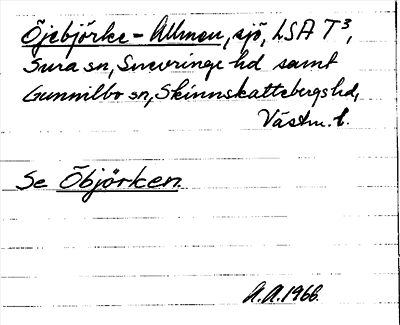 Öjebjörke-Allmen, sjö, LSA T³,
Sura sn, Snevringe hd samt
Gunnilbo sn, Skinnskattebergs hd,
Västm. l.
Se Öbjörken.
A.A. 1966.